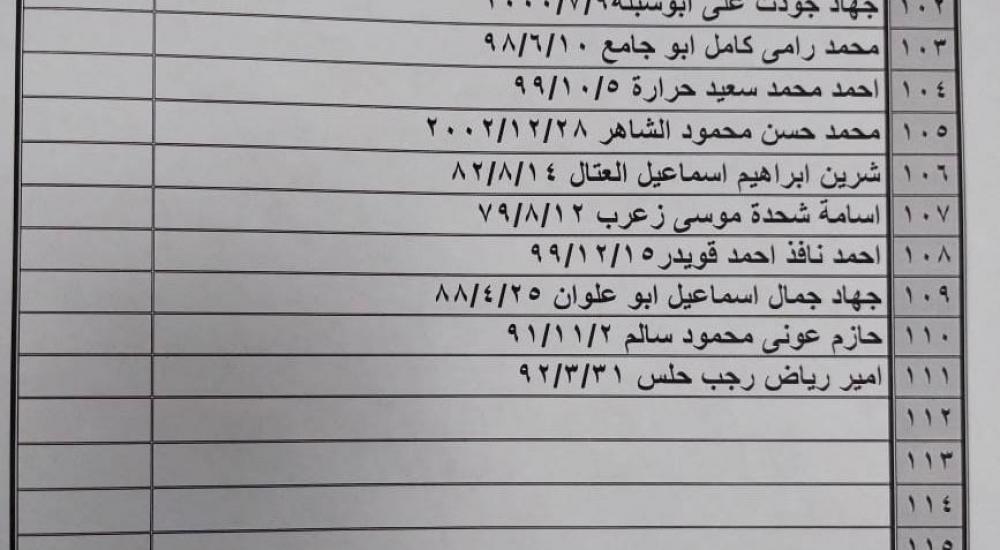 ١٠٢ جهاد جودت على ٢٠٠٠/٧/٩
١٠٣ محمد رامى كامل ابو جامع ٩٨/٦/١٠
١٠٤ احمد محمد سعيد حرارة ٩٩/١٠/٥
١٠٥ محمد حسن محمود الشاهر ٢٠٠٢/١٢/٢٨
١٠٦ شرين ابراهيم اسماعيل العتال ٨٢/٨/١٤
١٠٧ اسامة شحدة موسى زعرب ٧٩/٨/١٢
١٠٨ احمد نافذ احمد قويدر ٩٩/١٢/١٥
١٠٩ جهاد جمال اسماعيل ابو علوان ٨٨/٤/٢٥
١١٠ حازم عونى محمود سالم ٩١/١١/٢
١١١ امير رياض رجب حلس ٩٢/٣/٣١
١١٢
١١٣
١١٤
١١٥